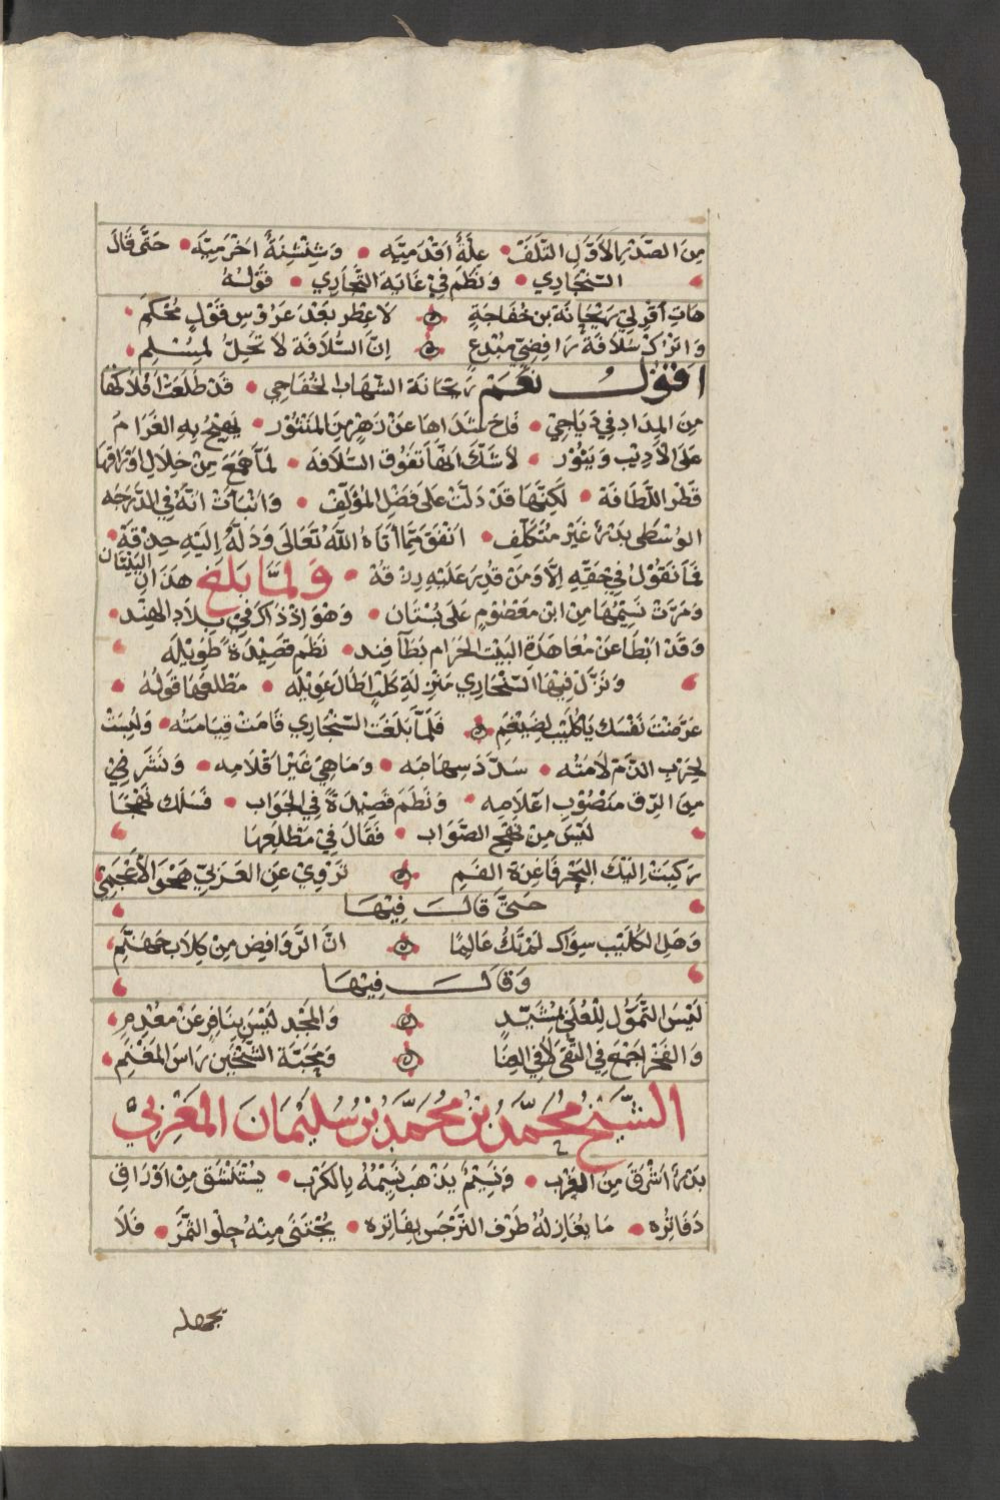 مِنَ الصَّدْرِ الأَوَّلِ التَّلَفْ • عِلَّةٌ اَقْدَمِيَّه • وَشِنْشِنَةٌ اَخْزَمِيَّه • حَتَّى قَالَ
السِّنْجَارِي • وَنَظَمَ فِي غَايَةِ التَّجَارِي • قَوْلُهُ
هَاتِ اَقْرِ لِي رَيْحَانَةَ بنِ خُفَاجَةٍ لَا عِطْرَ بَعْدَ عَرُوْسِ قَوْلٍ مُحْكَمِ
وَاتْرُكْ سُلَافَةَ رَافِضِيٍّ مُبْدِعٍ اِنَّ السُّلَافَةَ لَا تَحِلُّ لِمُسْلِمِ
اَقُوْلُ نَعَمْ رَيْحَانَةُ الشِّهَابِ الخَفَاجِي • قَدْ طَلَعَتْ اَفْلَاكُهَا
مِنَ المِدَادِ فِي دَيَاجِي • فَاحَ شَذَاهَا عَنْ زَهْرٍ مِنَ المَنْثُوْر • يَهِيْجُ بِهِ الغَرَامُ
عَلَى الأَدِيْبِ وَيَثُوْر • لَا شَكَّ اَنَّهَا تَفُوْقُ السُّلَافَه • لَمَّا جَمَعَ مِنْ خِلَالِ اَوْرَاقِهَا
قَطْرَ اللَّطَافَة • لَكِنَّهَا قَدْ دَلَّتْ عَلَى فَضْلِ المُؤَلِّفِ • وَانْبَأَتْ اَنَّهُ فِي الدَّرَجَه
الوُسْطَى بَدْرٌ غَيْرُ مُتَكَلِّفِ • اَنْفَقَ مِمَّا اَتَاهُ اللّٰهُ تَعَالَى وَدَلَّهُ اِلَيْهِ حِذْقَهْ •
فَمَا نَقُوْلُ فِي حَقِّهِ اِلَّا وَمَنْ قُدِرَ عَلَيْهِ رِزْقُهْ • وَلَمَّا بَلَغَ هَذَانِ البَيْتَانِ
وَمَرَّتْ نَسِيْمُهَا مِنْ ابْنِ مَعْصُوْمٍ عَلَى بُسْتَان • وَهْوَ اِذْ ذَاكَ فِي بِلَادِ الهِنْد •
وَقَدْ اَبْطَا عَنْ مُعَاهَدَةِ البَيْتِ الحَرَامِ بَطَا فِنْد • نَظَمَ قَصِيْدَةً طَوِيْلَه
وَنَزَّلَ فِيْهَا السِّنْجَارِي مَنْزِلَةَ كَلْبٍ اَطَالَ عَوِيْلَه • مَطْلَعُهَا قَوْلُهُ •
عَرَّضْتَ نَفْسَكَ يَا كُلَيْبُ لِضَيْغَمِ فَلَمَّا بَلَغَتِ السِّنْجَارِي قَامَتْ قِيَامَتُه • وَلُبِسَتْ
لِحَرْبِ الذَّمِّ لَامَتُه • سَدَّدَ سِهَامَه • وَمَا هِيَ غَيْرُ اَقْلَامِه • وَنَشَرَ فِي
مِنَ الرِّقِّ مَنْصُوْبِ اَعْلَامِه • وَنَظَمَ قَصِيْدَةً فِي الجَوَاب • فَسَلَكَ نَهْجًا
لَيْسَ مِنْ نَهْجِ الصَّوَاب • فَقَالَ فِي مَطْلَعِهَا
رَكِبَتْ اِلَيْكَ البَحْرَ فَاغِرَةَ الفَمِ تَرْوِيْ عَنِ العَرَبِيّ هَجْوَ الأَعْجَمِيْ
حَتَّى قَالَ فِيْهَا
وَهَلِ الكُلَيْبُ سِوَاكَ لَمْ تَكُ عَالِمًا اَنَّ الرَّوَافِضَ مِنْ كِلَابِ جَهَنَّمِ
وَقَالَ فِيْهَا
لَيْسَ التَّمَوُّلُ لِلْعُلَى بِمُشَيِّدٍ وَالمَجْدُ لَيْسَ بِنَافِرٍ عَنْ مُعْدِمِ
وَالفَخْرُ اَجْمَعُ فِي التُّقَى لَا فِي الغِنَا وَمَحَبَّةُ الشَّيْخَيْنِ رَاسُ المَغْنَمِ
الشَّيْخ مُحَمَّدُ بْنُ مُحَمَّدِ بْنِ سُلَيْمَانَ المَغْرِبِيّ
بَدْرٌ اَشْرَقَ مِنَ الغَرْب • وَنَسِيْمٌ يَذْهَبُ نَسِيْمُهُ بِالكَرْب • يُسْتَنْشَقُ مِنْ اَوْرَاقِ
دَفَاتِرُه • مَا يُغَازِلُهُ طَرْفُ النَّرْجَسِ بِفَاتِرِه • يُجْتَنَى مِنْهُ حِلْوُ الثَّمَرْ • فَلَا
يجهله